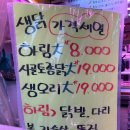 생닭 가격세일
하림大 8,000
시골토종닭大 19,000
생오리大 19,000
하림 닭발, 다리